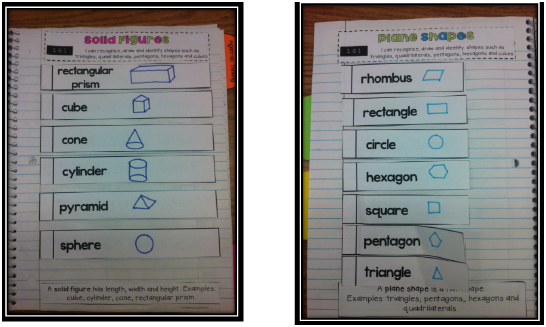 Solid Figures
2.G.1
I can recognize, draw and identify shapes such as
triangles, quadrilaterals, pentagons, hexagons and cubes
rectangular
prism
cube
cone
cylinder
pyramid
sphere
A solid figure has length, width and height. Examples:
cube, cylinder, cone, rectangular prism
Plane Shapes
2.G.1
I can recognize, draw and identify shapes such as
triangles, quadrilaterals, pentagons, hexagons and cubes
rhombus
rectangle
circle
hexagon
square
pentagon
triangle
A plane shape is a
Examples: triangles, pentagons, hexagons and
quadrilaterals